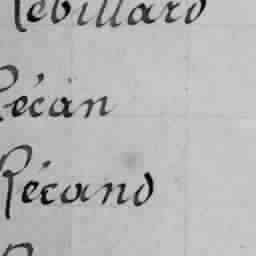 Rebillard
Récan
Récand